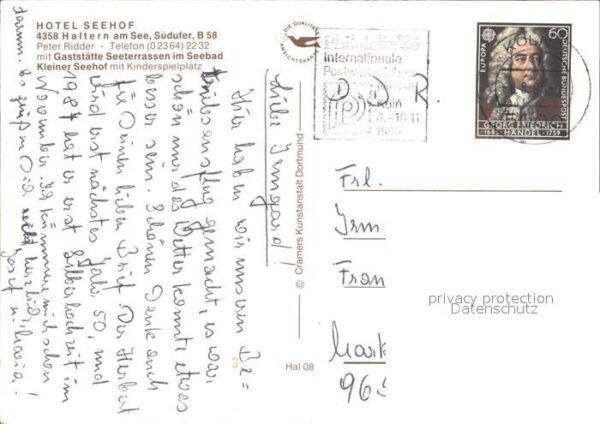 HOTEL SEEHOF
4358 Haltern am See, Südufer, B 58
Peter Ridder - Telefon (0 23 64) 22 32
mit Gaststätte Seeterrassen im Seebad
Kleiner Seehof mit Kinderspielplatz
DIE QUALITÄTS
ANSICHTSKARTE
Internationale
Köln
8.-10.11.
1985
KÖLN
EUROPA
60
DEUTSCHE BUNDESPOST
GEORG FRIEDRICH
1685 HÄNDEL 1759
© Cramers Kunstanstalt Dortmund
Hal 08
Liebe Irmgard!
Hier haben wir unseren Be=
triebsausflug gemacht, es war
schön nur das Wetter konnte etwas
besser sein. Schönen Dank auch
für Deinen lieben Brief. Der Herbert
wird erst nächstes Jahr 50, und
1987 hat er erst Silberhochzeit im
November. Ich kümmere mich schon
darum. Es grüßen Dich recht herzlich
Josef u. Maria!
Frl.
Irm
Frau
Mark
96
privacy protection
Datenschutz